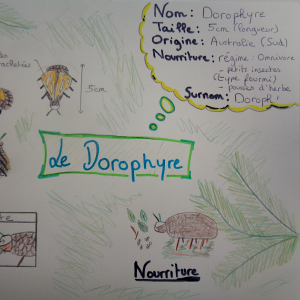 Nom: Dorophyre
Taille: 5cm (longueur)
Origine: Australie (Sud)
Nourriture: régime: Omnivore
- petits insectes
(Type fourmi)
- pousses d'herbe
Surnom: Doroph'
5cm
Le Dorophyre
Nourriture